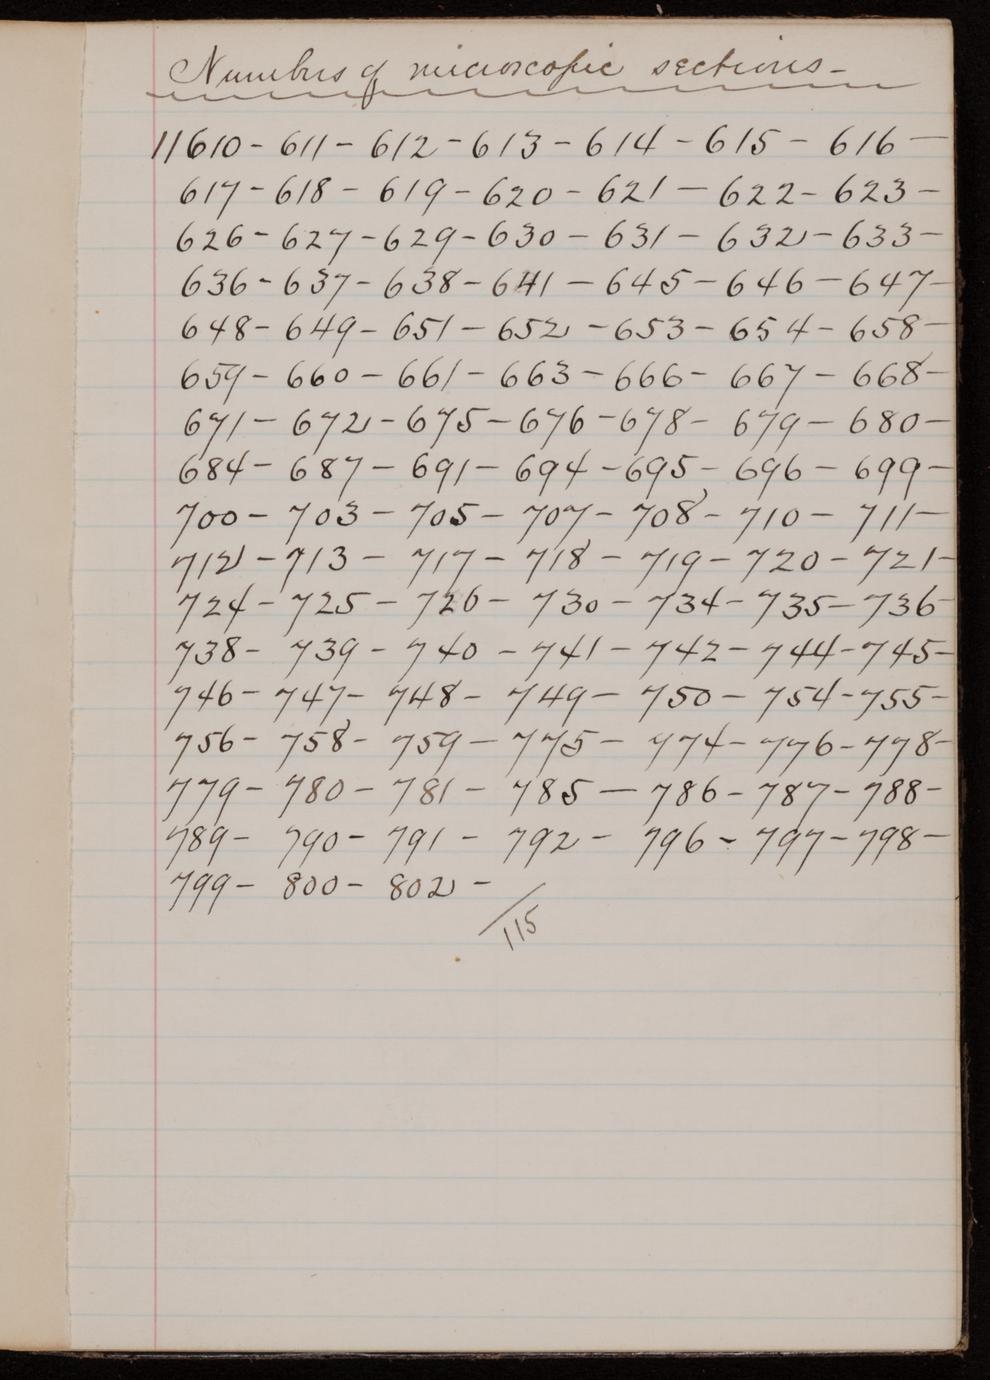 Numbers of microscopic sections -
11610 - 611 - 612 - 613 - 614 - 615 - 616 -
617 - 618 - 619 - 620 - 621 - 622 - 623 -
626 - 627 - 629 - 630 - 631 - 632 - 633 -
636 - 637 - 638 - 641 - 645 - 646 - 647 -
648 - 649 - 651 - 652 - 653 - 654 - 658 -
659 - 660 - 661 - 663 - 666 - 667 - 668 -
671 - 672 - 675 - 676 - 678 - 679 - 680 -
684 - 687 - 691 - 694 - 695 - 696 - 699 -
700 - 703 - 705 - 707 - 708 - 710 - 711 -
712 - 713 - 717 - 718 - 719 - 720 - 721 -
724 - 725 - 726 - 730 - 734 - 735 - 736 -
738 - 739 - 740 - 741 - 742 - 744 - 745 -
746 - 747 - 748 - 749 - 750 - 754 - 755 -
756 - 758 - 759 - 775 - 774 - 776 - 778 -
779 - 780 - 781 - 785 - 786 - 787 - 788 -
789 - 790 - 791 - 792 - 796 - 797 - 798 -
799 - 800 - 802 -
115